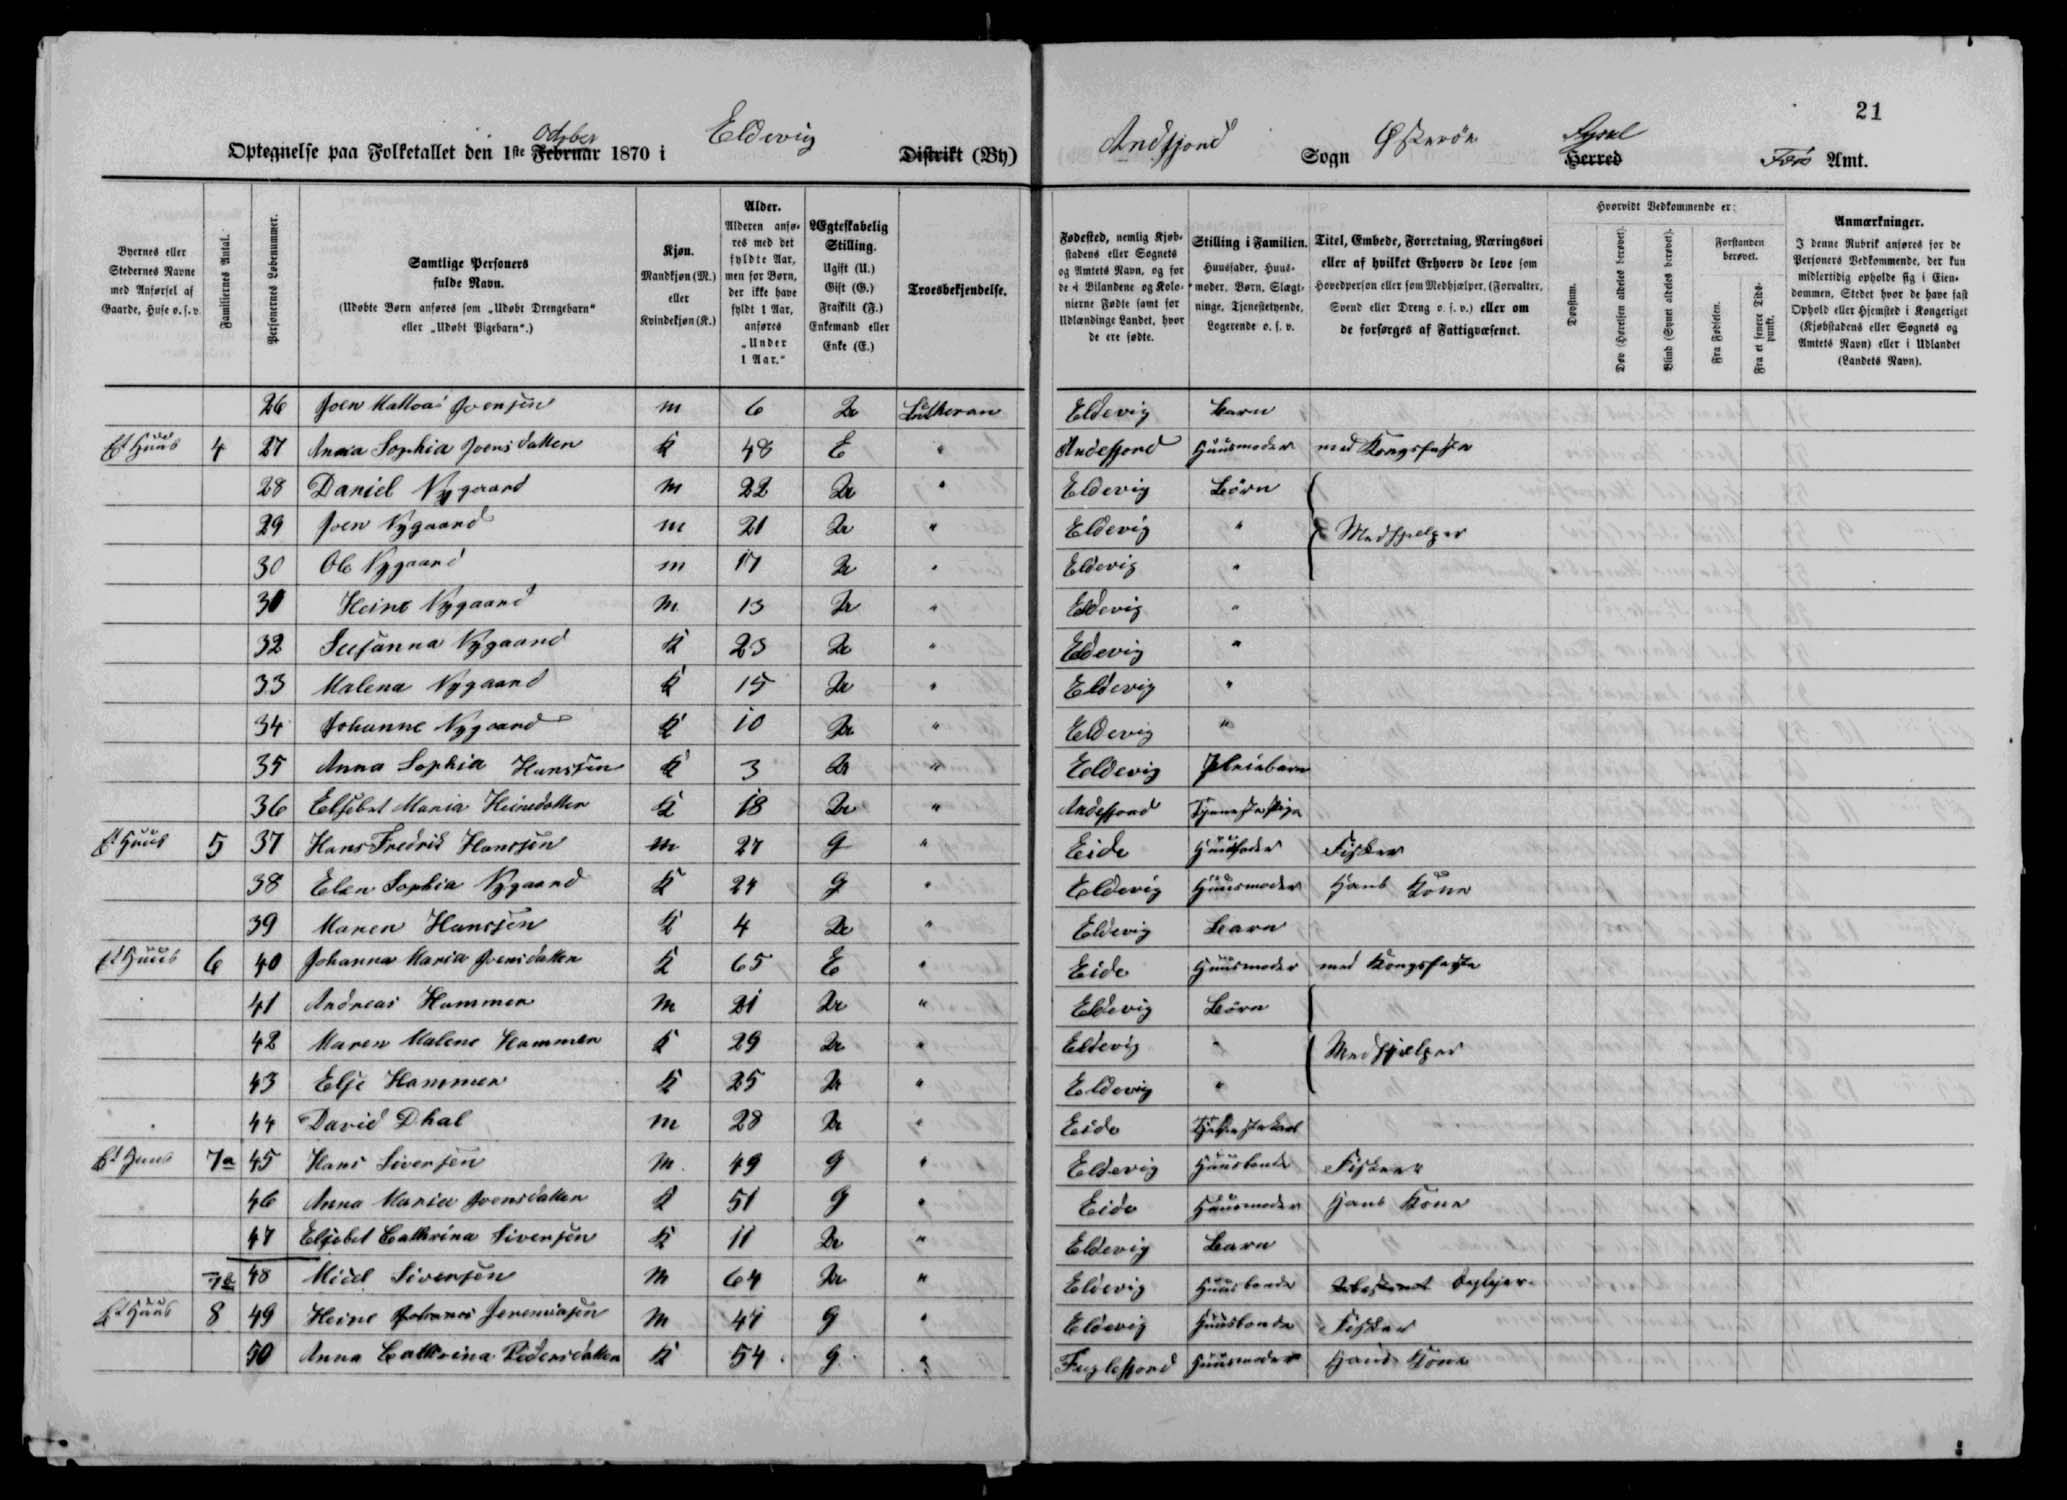 21
Optegnelse paa Folketallet den 1ste Februar October 1870 i Eldevig Distrikt (By) Andefjord Sogn Østerøe Syssel Herred Færø Amt.
Byernes eller Stedernes Navne med Anførsel af Gaarde, Huse o. s. v.
Familiernes Antal.
Personernes Løbenummer.
Samtlige Personers fulde Navn.
(Udøbte Børn anføres som „Udøbt Drengebarn" eller „Udøbt Pigebarn".)
Kjøn.
Mandkjøn (M.) eller Kvindekjøn (K.)
Alder.
Alderen anføres med det fyldte Aar, men for Børn, der ikke have fyldt 1 Aar, anføres „Under 1 Aar."
Ægteskabelig Stilling.
Ugift (U.) Gift (G.) Fraskilt (F.) Enkemand eller Enke (E.)
Troesbekjendelse.
Fødested, nemlig Kjøbstadens eller Sognets og Amtets Navn, og for de i Bilandene og Kolonierne Fødte samt for Udlændinge Landet, hvor de ere fødte.
Stilling i Familien.
Huusfader, Huusmoder, Børn, Slægtninge, Tjenestetyende, Logerende o. s. v.
Titel, Embede, Forretning, Næringsvei eller af hvilket Erhverv de leve som Hovedperson eller som Medhjælper, (Forvalter, Svend eller Dreng o. s. v.) eller om de forsørges af Fattigvæsenet.
Hvorvidt Vedkommende er:
Døvstum.
Døv (Hørelsen aldeles berøvet).
Blind (Synet aldeles berøvet).
Forstanden berøvet.
Fra Fødselen.
Fra et senere Tidspunkt.
Anmærkninger.
I denne Rubrik anføres for de Personers Vedkommende, der kun midlertidig opholde sig i Eiendommen, Stedet hvor de have fast Ophold eller Hjemsted i Kongeriget (Kjøbstadens eller Sognets og Amtets Navn) eller i Udlandet (Landets Navn).
26 Joen Joensen m 6 U Lutheran Eldevig Barn
Et Huus 4 27 Anna Sophia Joensdatter K 48 E " Andefjord Huusmoder med Kongsfæste
28 Daniel Nygaard m 22 U " Eldevig Børn
29 Joen Nygaard m 21 U " Eldevig " Medhjelper
30 Ole Nygaard m 17 U " Eldevig "
31 Heine Nygaard m 13 U " Eldevig "
32 Susanna Nygaard K 23 U " Eldevig "
33 Malena Nygaard K 15 U " Eldevig "
34 Johanne Nygaard K 10 U " Eldevig "
35 Anna Sophia Hanssen K 3 U " Eldevig Pleiebarn
36 Elsebet Maria Heinedatter K 18 U " Andefjord Tjenestepige
Et Huus 5 37 Hans Fredrik Hanssen m 27 G " Eide Huusfader Fisker
38 Elen Sophia Nygaard K 24 G " Eldevig Huusmoder Hans Kone
39 Maren Hanssen K 4 U " Eldevig Barn
Et Huus 6 40 Johanna Maria Joensdatter K 65 E " Eide Huusmoder med Kongsfæste
41 Andreas Hammer m 21 U " Eldevig Børn
42 Maren Malene Hammer K 29 U " Eldevig " Medhjælper
43 Else Hammer K 25 U " Eldevig "
44 David Dhal m 28 U " Eide Tjenestekarl
Et Huus 7a 45 Hans Siversen m 49 G " Eldevig Huusbonde Fisker
46 Anna Maria Joensdatter K 51 G " Eide Huusmoder Hans Kone
47 Elsebet Cathrina Siversen K 11 U " Eldevig Barn
7b 48 Siversen m 64 U " Eldevig Huusbonde
Et Huus 8 49 Heine Johannes Jeremiasen m 47 G " Eldevig Huusbonde Fisker
50 Anna Cathrina Pedersdatter K 54 G " Fuglefjord Huusmoder Hans Kone